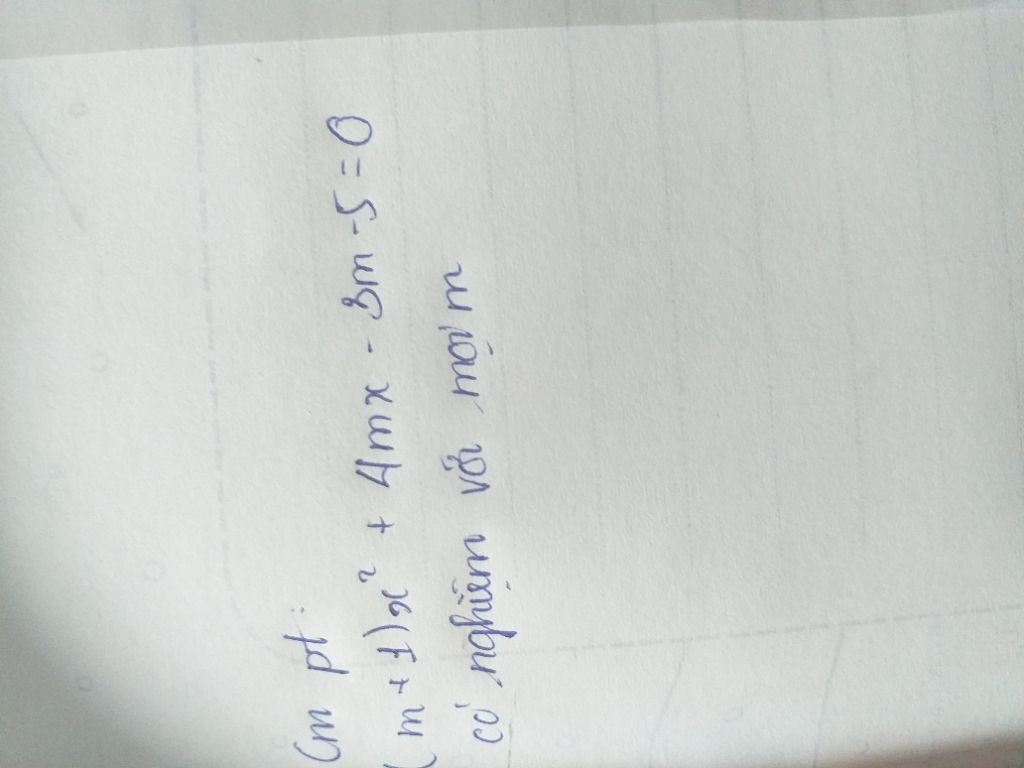 Cm pt:
(m + 1)x² + 4mx - 3m - 5 = 0
có nghiệm với mọi m